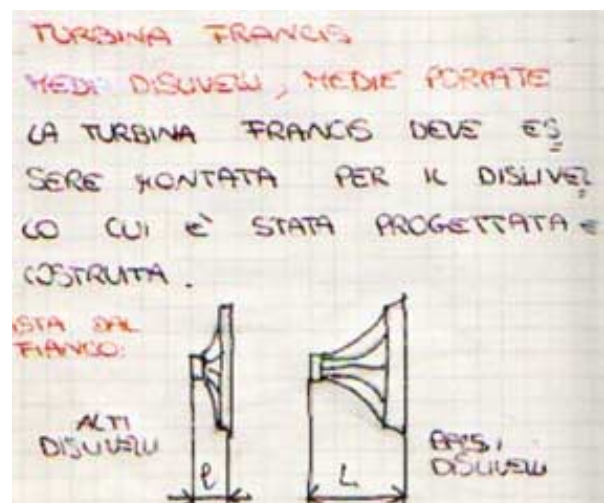 TURBINA FRANCIS
MEDI DISLIVELLI, MEDIE PORTATE
LA TURBINA FRANCIS DEVE ES
SERE MONTATA PER IL DISLIVEL
LO CUI E' STATA PROGETTATA E
COSTRUITA.
ISTA DAL
FIANCO:
ALTI
DISLIVELLI
BASSI
DISLIVELLI
l
L